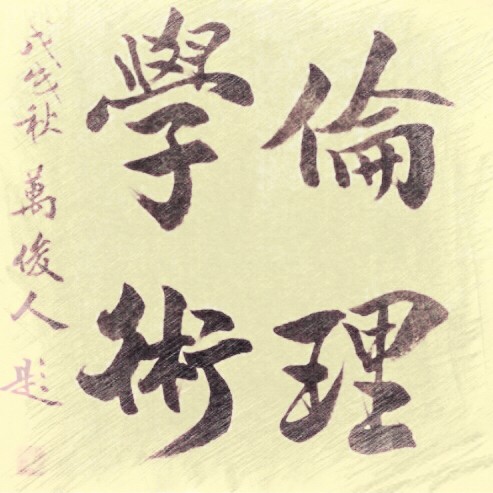 倫理
學術
戊戌秋 萬俊人 題